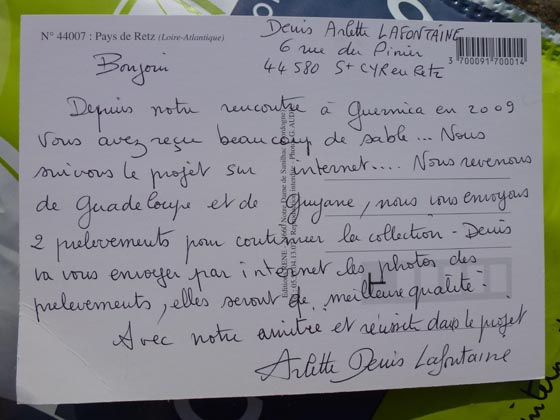 N° 44007 : Pays de Retz (Loire-Atlantique)
Denis Arlette LAFONTAINE
6 rue du Pinier
44580 St CYR en Retz
3 700091 700014
Bonjour
Depuis notre rencontre à Guernica en 2009
Vous avez reçu beaucoup de sable... Nous
suivons le projet sur internet.... Nous revenons
de Guadeloupe et de Guyane, nous vous envoyons
2 prelevements pour continuer la collection - Denis
va vous envoyer par internet les photos des
prelevements, elles seront de meilleure qualité.
Avec notre amitié et réussite dans le projet
Arlette Denis Lafontaine